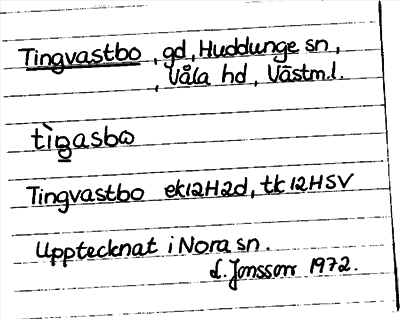 Tingvastbo, gd, Huddunge sn,
, Våla hd, Västm.l.
tìn̲gasbω
Tingvastbo ek12H2d, tk12HSV
Upptecknat i Nora sn.
L. Jonsson 1972.